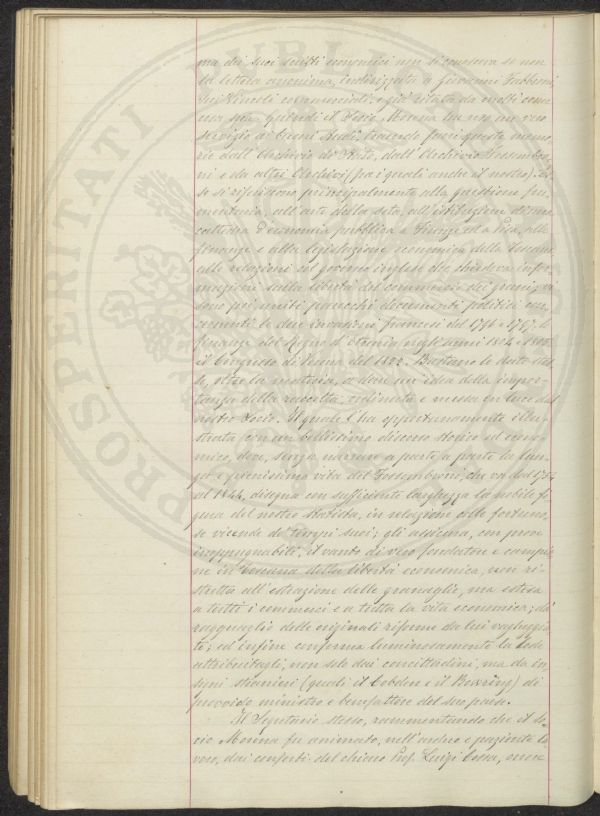 ma dei suoi scritti economici non si conosceva se non
la lettera anonima, indirizzata a Giovanni Fabbroni
sui Vincoli commerciali, già citata da molti come
cosa sua. Quindi il Socio Morena ha reso un vero
servigio ai buoni studi, traendo fuori queste memo-
rie dall'Archivio di Stato, dall'Archivio Fossombro-
ni e da altri Archivi (fra i quali anche il nostro). Es-
se si riferiscono principalmente alla questione fru-
mentaria, all'arte della seta, all'istituzione di una
cattedra d'economia pubblica a Firenze ed a Pisa, alle
finanze e alla legislazione economica della Toscana,
alle relazioni col governo inglese che chiedeva infor-
mazioni sulla libertà del commercio dei grani; vi
sono poi uniti parecchi documenti politici con-
cernenti le due invasioni francesi del 1796 e 1797, le
finanze del Regno d'Etruria negli anni 1804-1805
il Congresso di Verona del 1822. Bastano le date stes-
se, oltre la materia, a dare un'idea della impor-
tanza della raccolta, ordinata e messa in luce dal
nostro Socio. Il quale l'ha opportunamente illu-
strata con un bellissimo discorso storico ed econo-
mico, dove, senza narrare a parte a parte la lun-
ga e pienissima vita del Fossombroni, che va dal 1754
al 1844, disegna con sufficiente larghezza la nobile fi-
gura del nostro statista, in relazione colle fortuno-
se vicende de' tempi suoi; gli assicura, con prove
inoppugnabili, il vanto di vero fondatore e campio-
ne in Toscana della libertà economica, non ri-
stretta all'estrazione delle granaglie, ma estesa
a tutti i commerci e a tutta la vita economica; dà
ragguaglio delle originali riforme da lui vagheggia-
te; ed infine conferma luminosamente la lode
attribuitagli, non solo dai concittadini, ma da in-
signi stranieri (quali il Cobden e il Bowring) di
provvido ministro e benefattore del suo paese.
Il Segretario stesso, rammentando che il So-
cio Morena fu animato, nell'arduo e paziente la-
voro, dai conforti del chiaro Prof. Luigi Cossa, onore